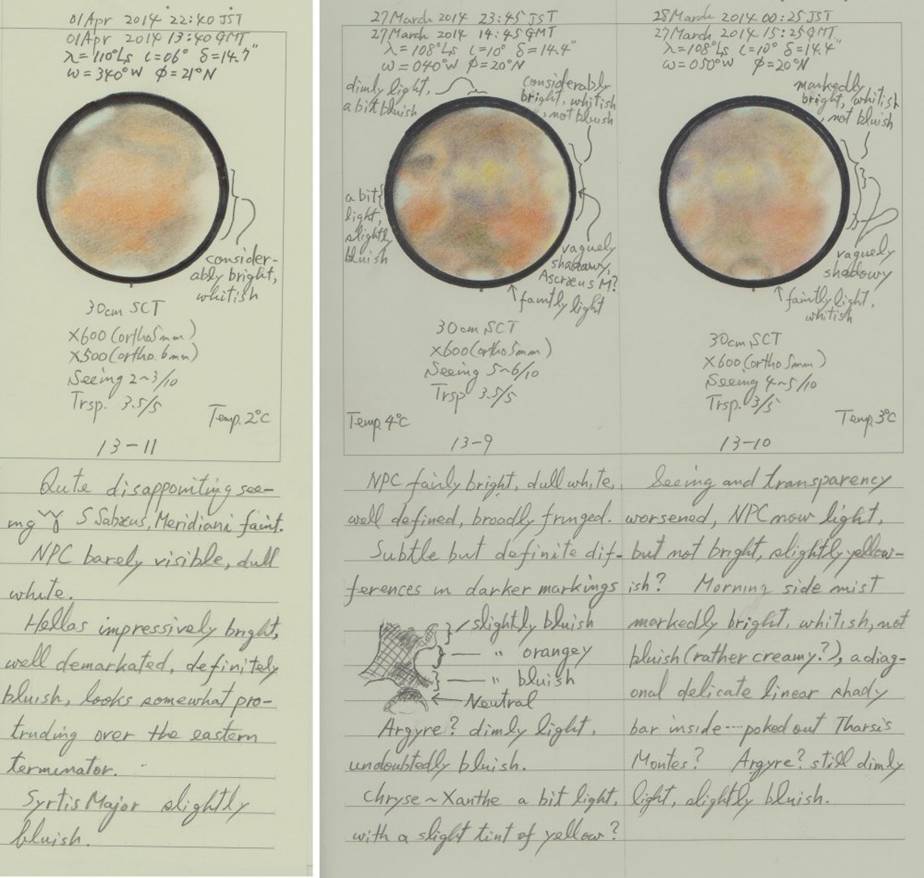 01 Apr 2014 22:40 JST
01 Apr 2014 13:40 GMT
λ=110°Ls ι=06° δ=14.7"
ω=340°W φ=21°N
consider-
ably bright,
whitish
30cm SCT
×600 (ortho 5mm)
×500 (ortho 6mm)
Seeing 2~3/10
Trsp. 3.5/5
Temp. 2°C
13-11
Qute disappointing see-
ing S Sabæus, Meridiani faint.
NPC barely visible, dull
white.
Hellas impressively bright,
well demarkated, definitely
bluish, looks somewhat pro-
truding over the eastern
terminator.
Syrtis Major slightly
bluish.
27 March 2014 23:45 JST
27 March 2014 14:45 GMT
λ=108°Ls ι=10° δ=14.4"
ω=040°W φ=20°N
dimly light,
a bit bluish
considerably
bright, whitish
not bluish
a bit
light,
slightly
bluish
vaguely
shadowy,
Ascræus M?
faintly light
30cm SCT
×600 (ortho 5mm)
Seeing 5~6/10
Trsp 3.5/5
Temp. 4°C
13-9
NPC fairly bright, dull white,
well defined, broadly fringed.
Subtle but definite dif-
ferences in darker markings
slightly bluish
〃 orangey
〃 bluish
Neutral
Argyre? dimly light,
undoubtedly bluish.
Chryse~Xanthe a bit light,
with a slight tint of yellow?
28 March 2014 00:25 JST
27 March 2014 15:25 GMT
λ=108°Ls ι=10° δ=14.4"
ω=050°W φ=20°N
markedly
bright, whitish,
not bluish
vaguely
shadowy
faintly light,
whitish
30cm SCT
×600 (ortho 5mm)
Seeing 4~5/10
Trsp. 3/5
Temp. 3°C
13-10
Seeing and transparency
worsened, NPC now light,
but not bright, slightly yellow-
ish? Morning side mist
markedly bright, whitish, not
bluish (rather creamy?), a diag-
onal delicate linear shady
bar inside----poked out Tharsis
Montes? Argyre? still dimly
light, slightly bluish.